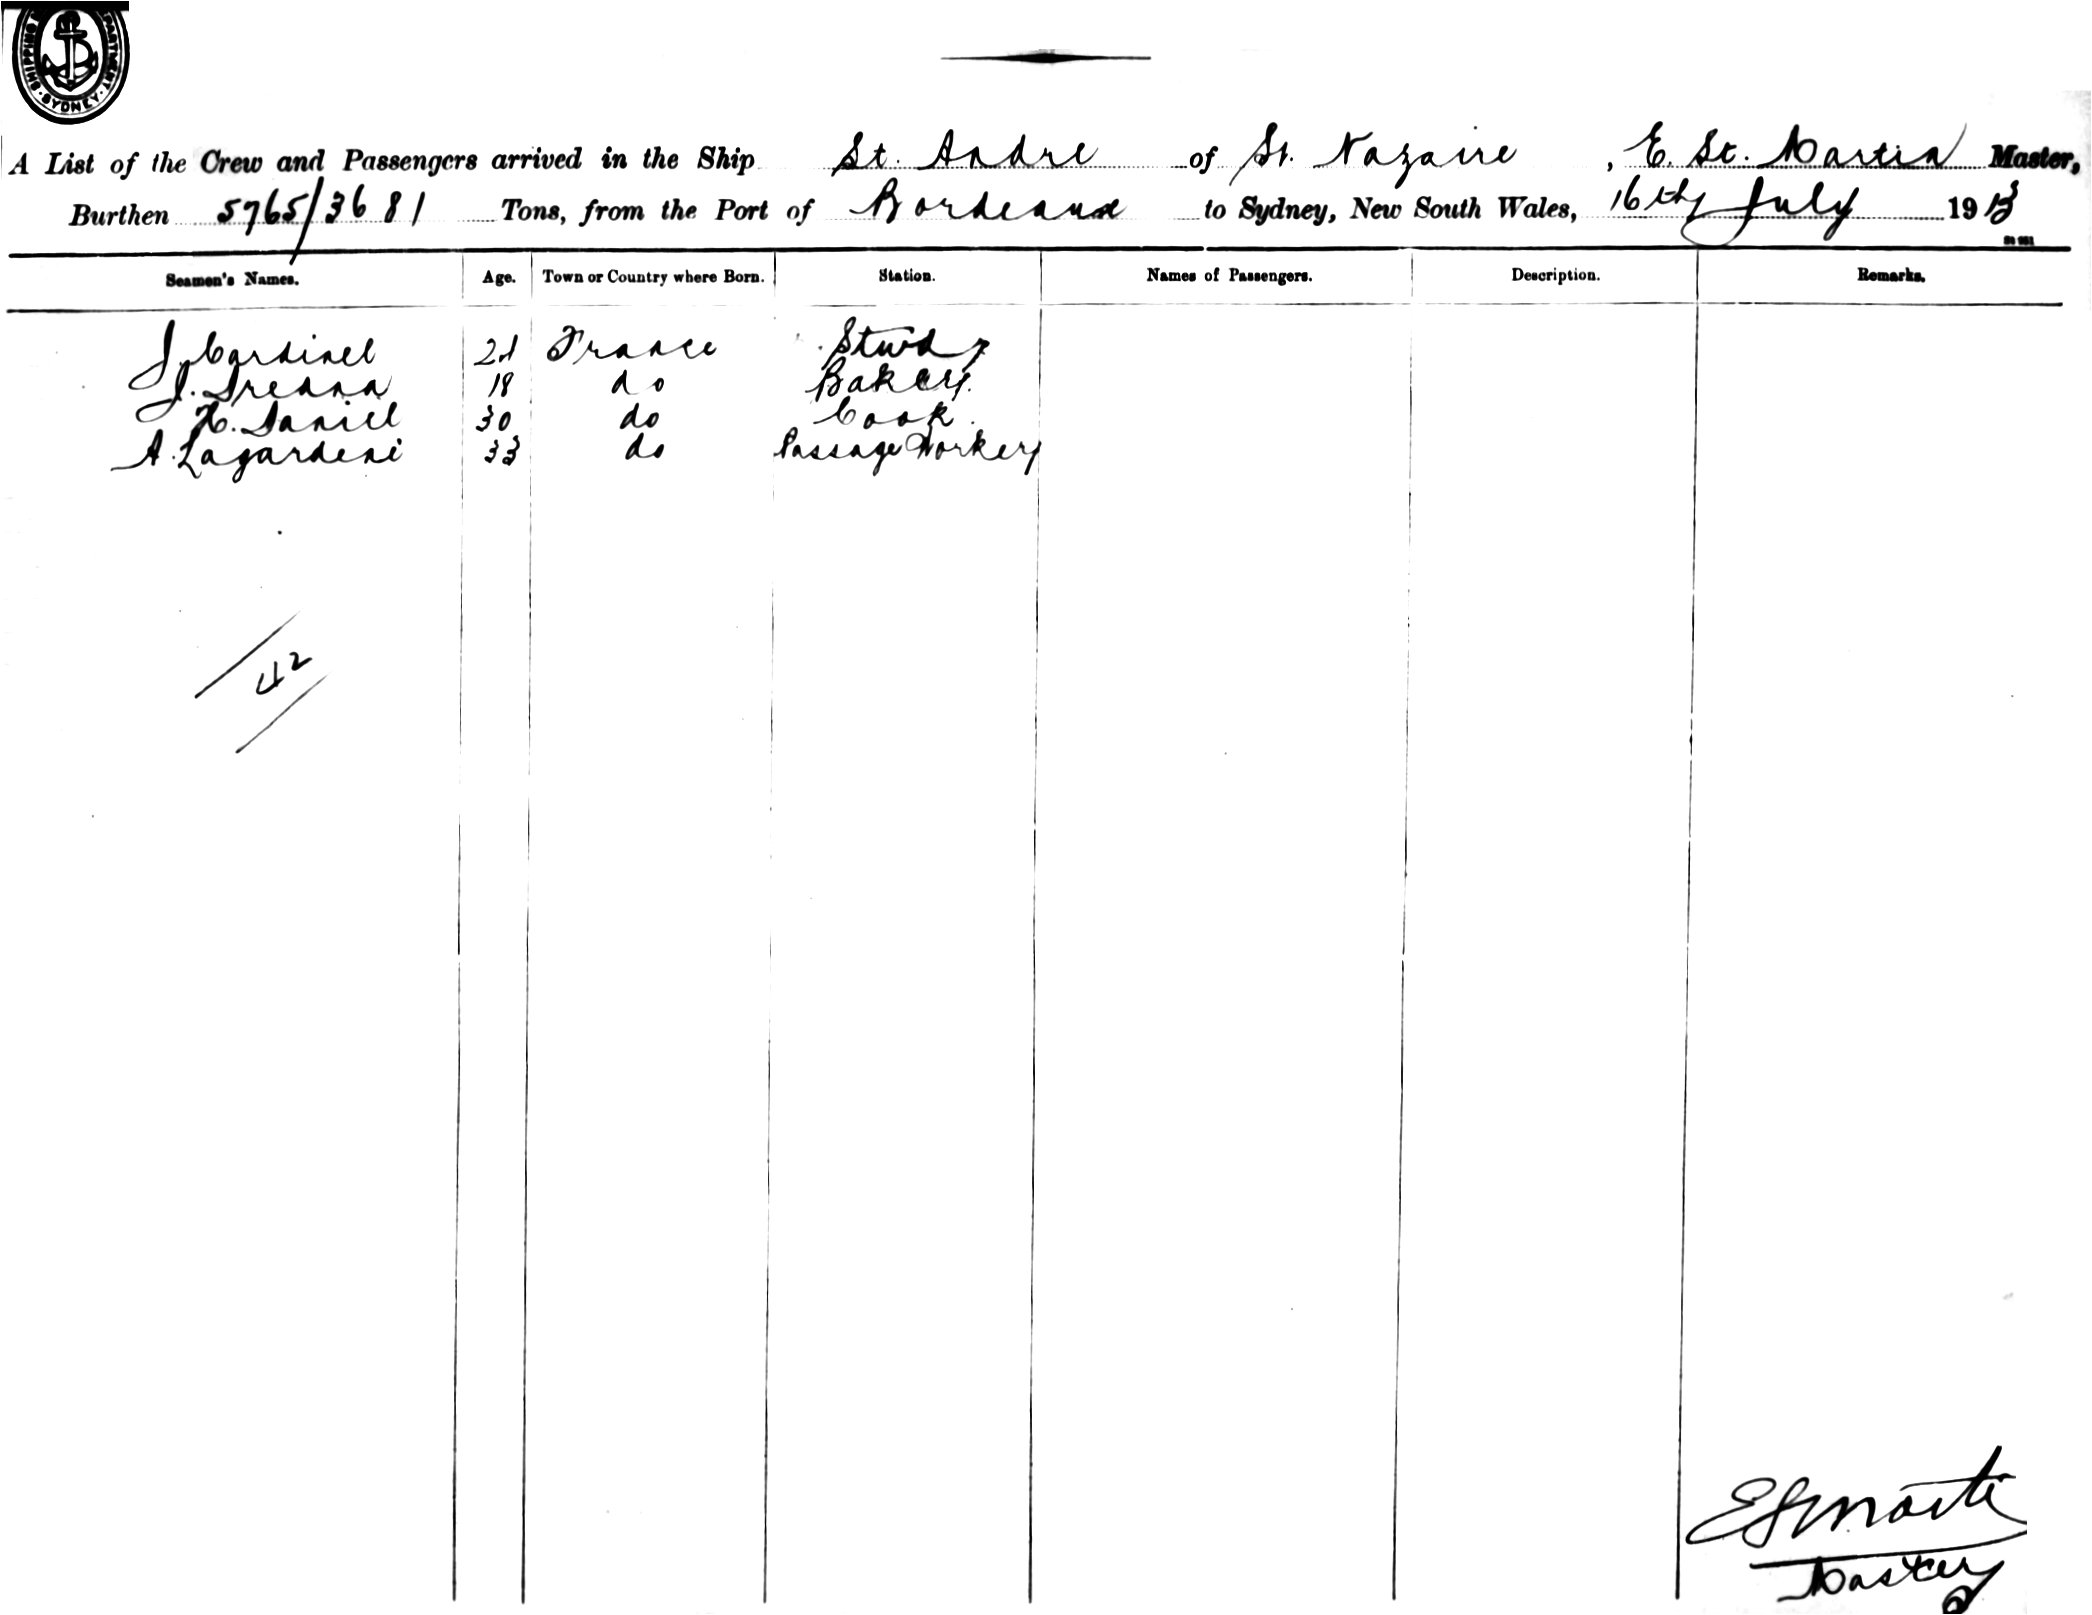 SHIPPING DEPARTMENT · SYDNEY ·
A List of the Crew and Passengers arrived in the Ship St. Andre of St. Nazaire , E. St. Martin Master,
Burthen 5765/3681 Tons, from the Port of Bordeaux to Sydney, New South Wales, 16th July 1913
Seamen's Names. Age. Town or Country where Born. Station. Names of Passengers. Description. Remarks.
J. Cardinel 21 France Stwd
J. Dreana 18 do Baker
H. Daniel 30 do Cook
A. Lagardeni 33 do Passage Worker
42
E St Martin
Master